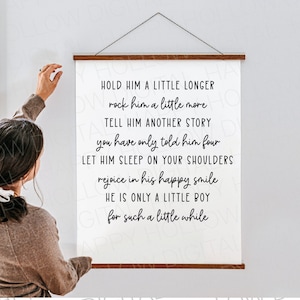 HOLD HIM A LITTLE LONGER
rock him a little more
TELL HIM ANOTHER STORY
you have only told him four
LET HIM SLEEP ON YOUR SHOULDERS
rejoice in his happy smile
HE IS ONLY A LITTLE BOY
for such a little while